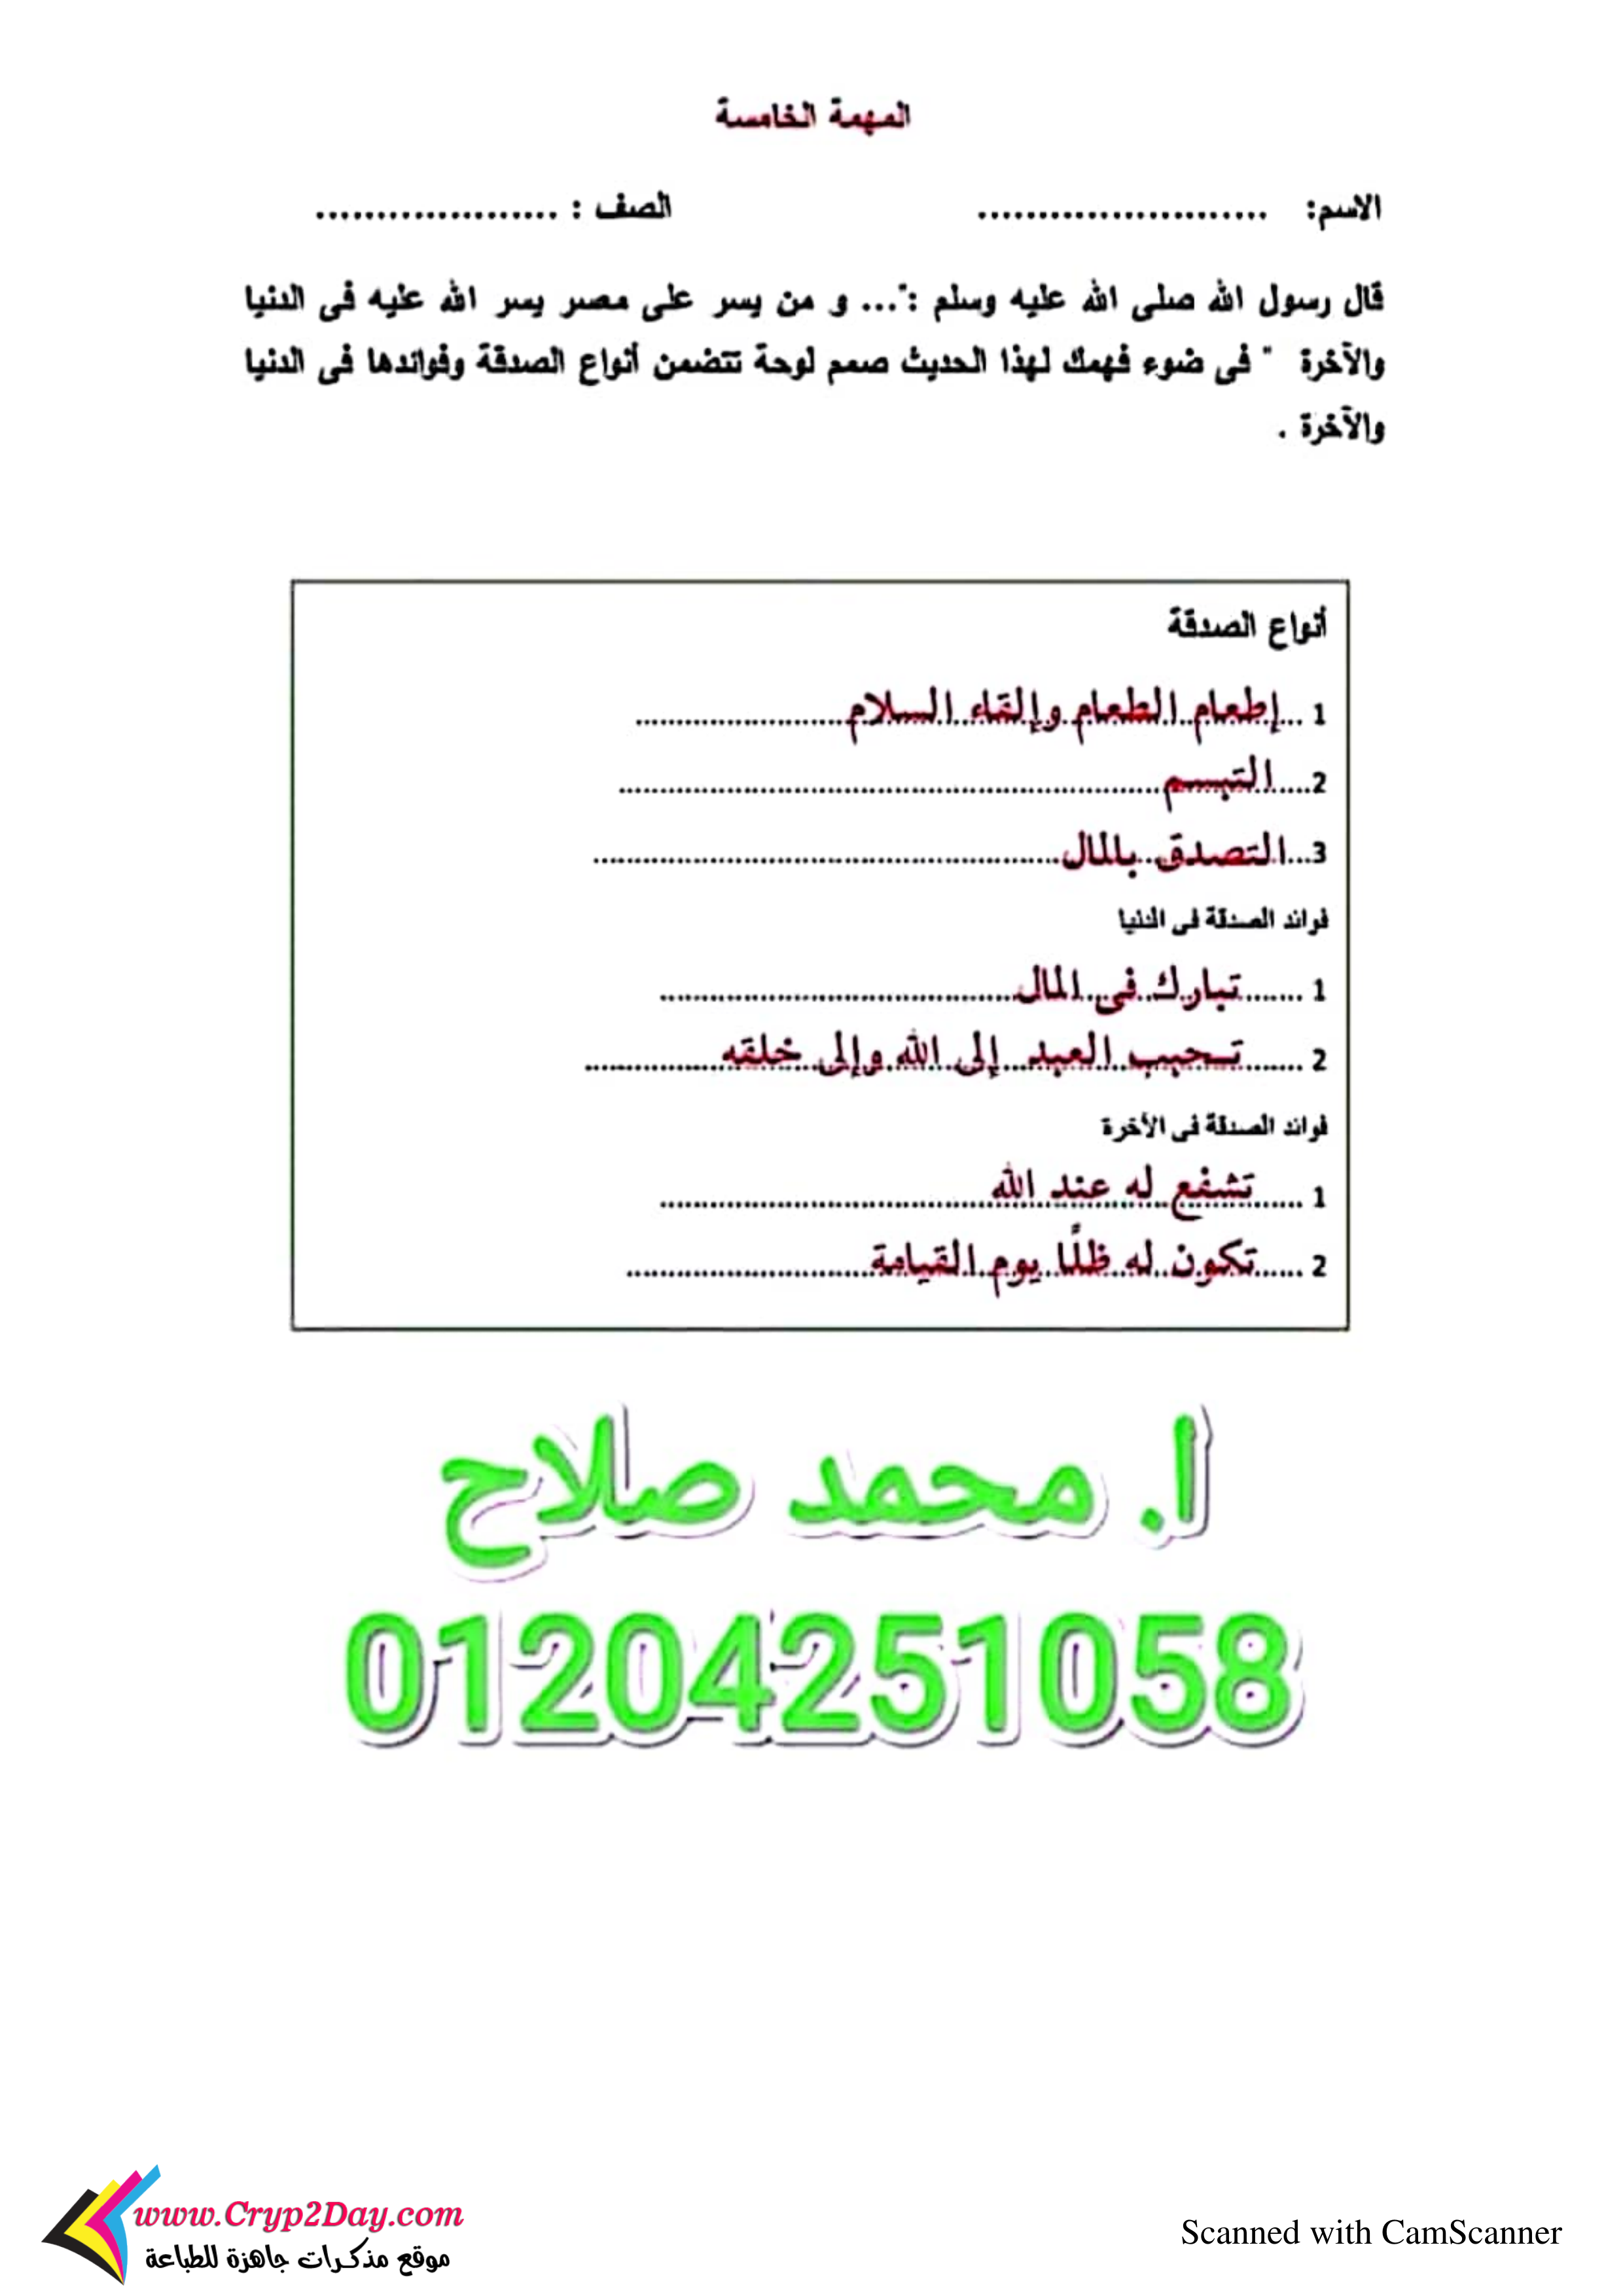 المهمة الخامسة
الاسم: ........................ الصف : ....................
قال رسول الله صلى الله عليه وسلم :"... و من يسر على معسر يسر الله عليه فى الدنيا
والآخرة " فى ضوء فهمك لهذا الحديث صمم لوحة تتضمن أنواع الصدقة وفوائدها فى الدنيا
والآخرة .
أنواع الصدقة
1 ...إطعام الطعام وإلقاء السلام.........................
2....التبسم................................................................
3...التصدق بالمال........................................................
فوائد الصدقة فى الدنيا
1 .......تبارك فى المال..........................................
2 .......تحبب العبد إلى الله وإلى خلقه................
فوائد الصدقة فى الأخرة
1 ......تشفع له عند الله.......................................
2 ......تكون له ظلًا يوم القيامة.............................
ا. محمد صلاح
01204251058
www.Cryp2Day.com
موقع مذكرات جاهزة للطباعة
Scanned with CamScanner